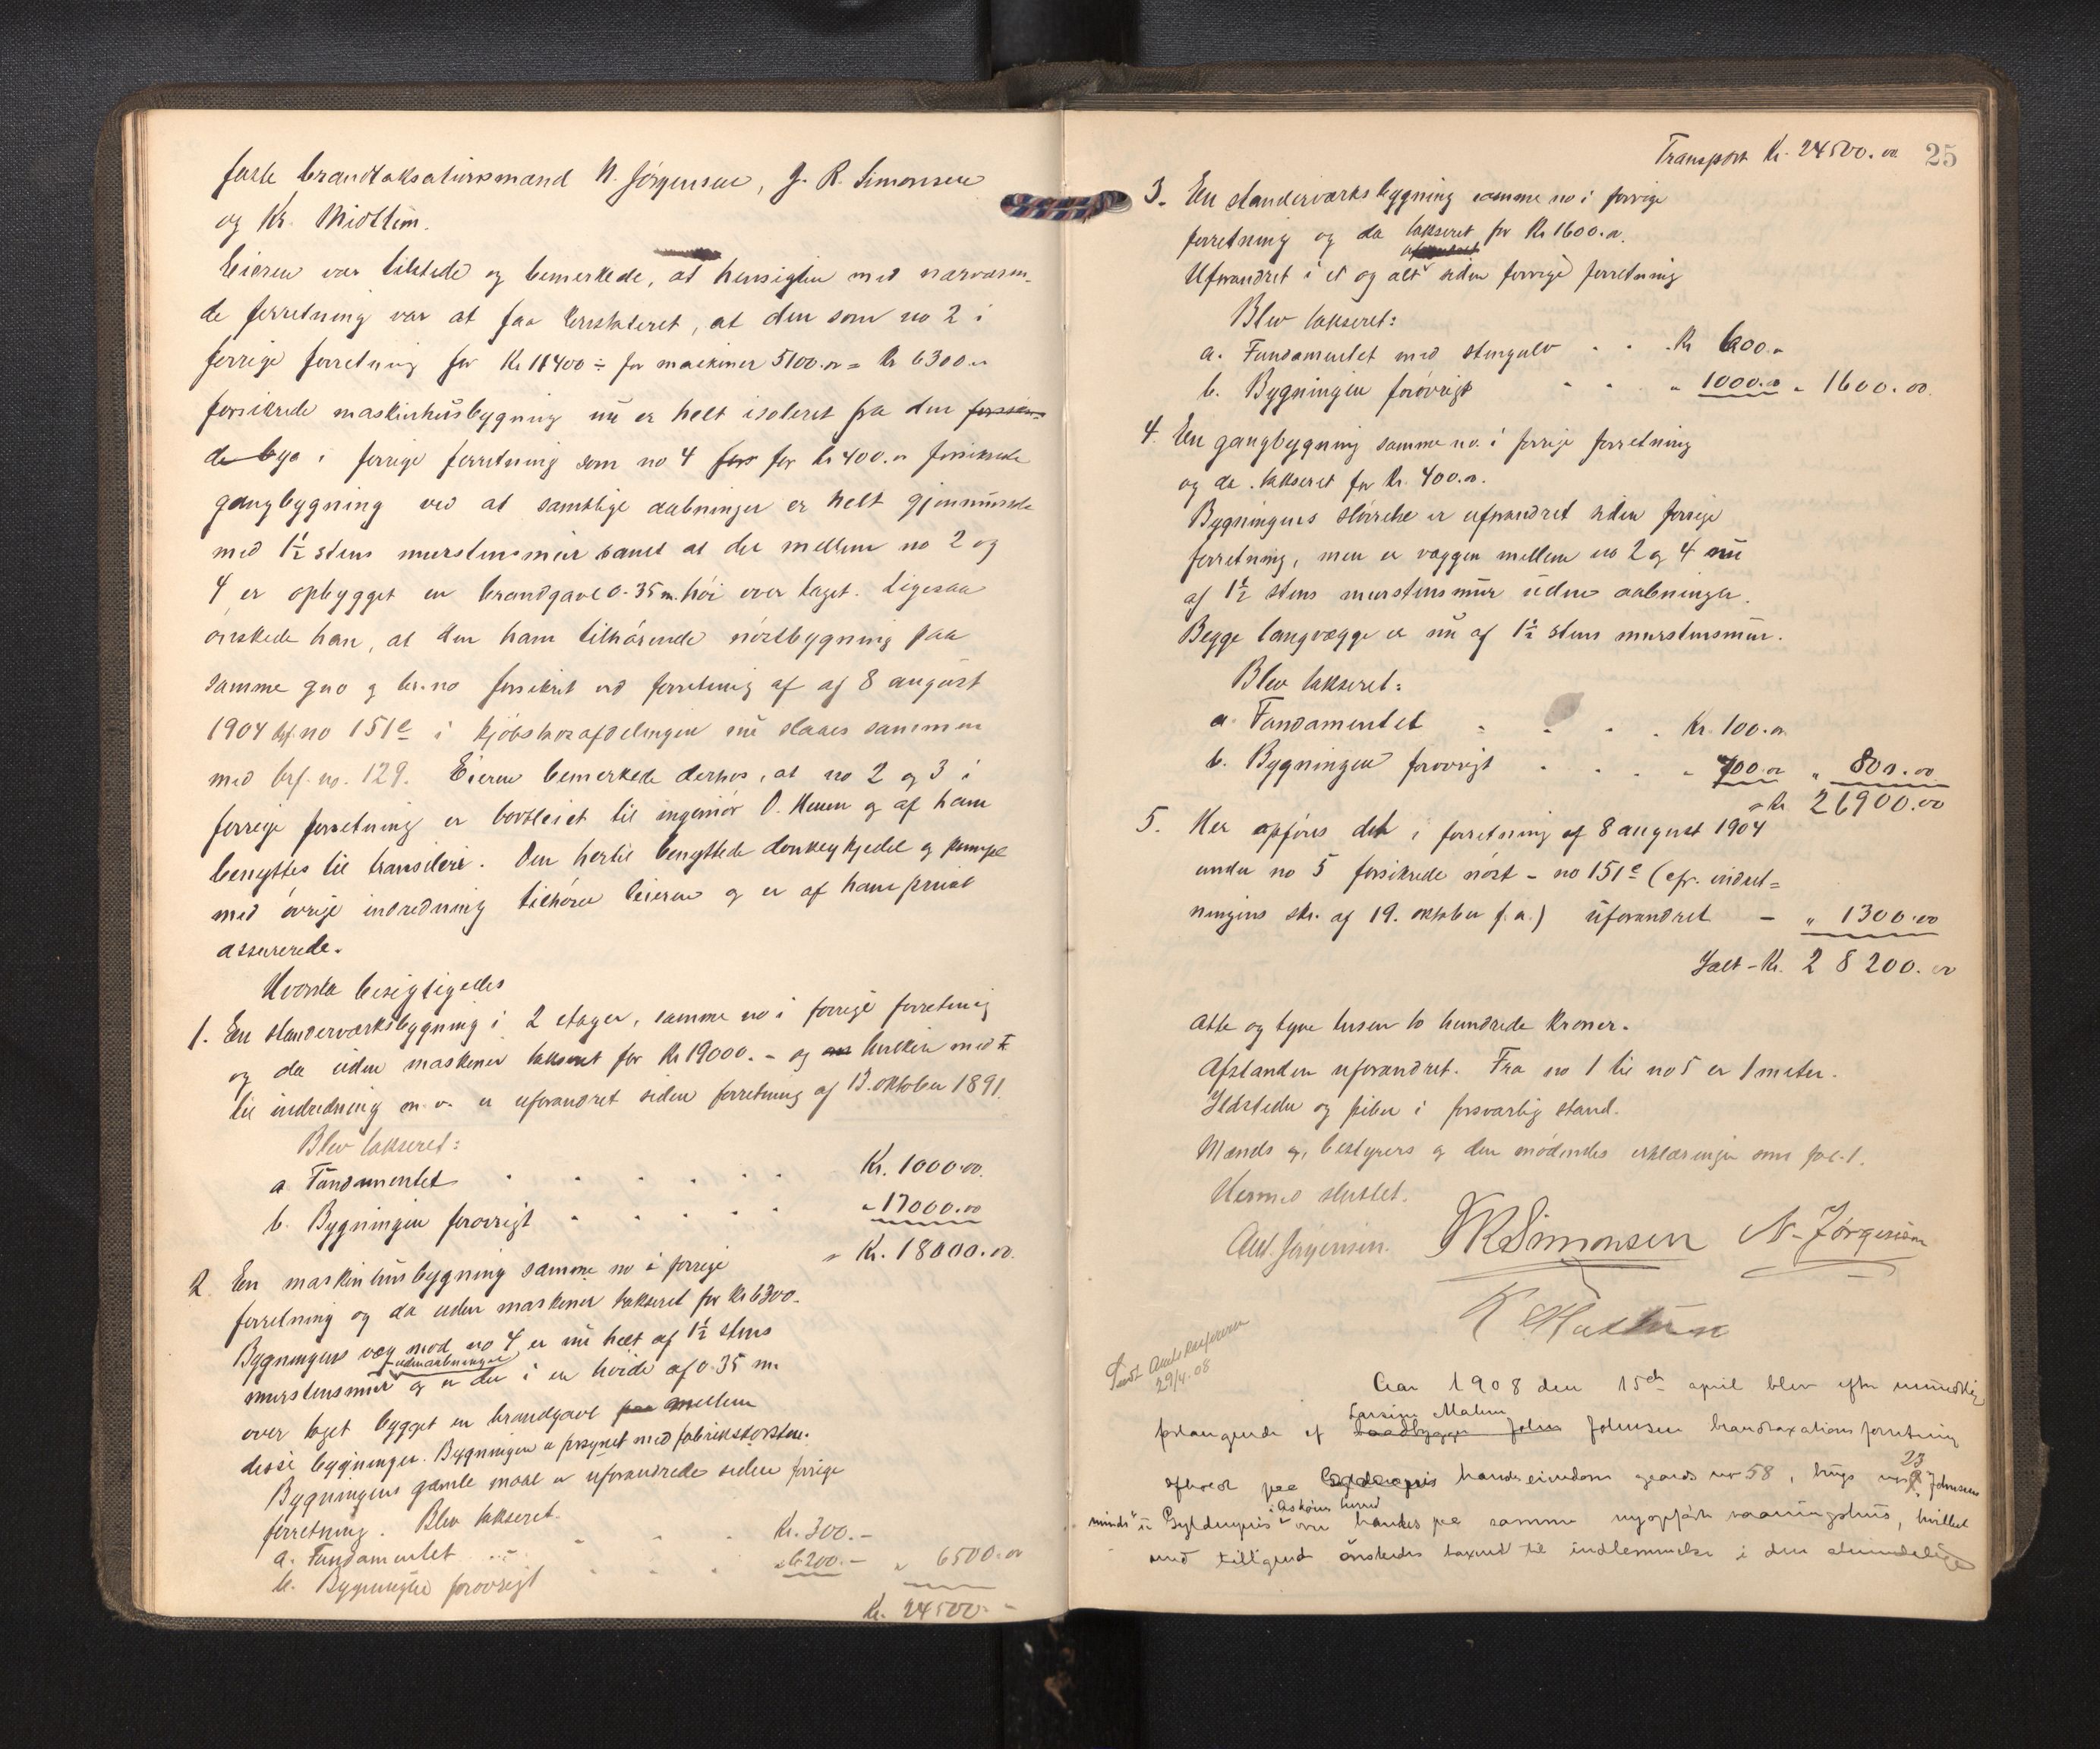 faste brandtaksationsmænd N. Jørgensen, J. R. Simonsen
og Kr. Midttun.
Eieren var tilstede og bemerkede, at hensigten med nærværen-
de forretning var at faa konstateret, at den som no 2 i
forrige forretning for Kr 11400 ÷ for maskiner 5100.00 = Kr 6300.00
forsikrede maskinhusbygning nu er helt isoleret fra den
i forrige forretning som no 4 for Kr 400.00 forsikrede
gangbygning ved at samtlige aabninger er helt gjenmurede
med 1½ stens murstensmur samt at der mellem no 2 og
4 er opbygget en brandgavl 0.35 m. høi over taget. Ligesaa
ønskede han, at den ham tilhørende nøstbygning paa
samme gno og br.no forsikret ved forretning af af 8 august
1904 brf.no 151e i Kjøbstadafdelingen nu slaaes sammen
med brf. no. 129. Eieren bemerkede derhos, at no 2 og 3 i
forrige forretning er bortleiet til ingeniør O. og af ham
benyttes til transideri. Den hertil benyttede donkeykjedel og pumpe
med øvrige indredning tilhører leieren og er af ham privat
assurerede.
Hvorda besigtigedes
1. En standerværksbygning i 2 etager, samme no i forrige forretning
og da uden maskiner takseret for Kr 19000.- og hvilken med
til indredning m.v. er uforandret siden forretning af 13. oktober 1891.
Blev takseret:
a Fundamentet . . . . . . Kr. 1000.00
b. Bygningen forøvrigt . . . . . „ 17000.00
„ Kr. 18000.00
2 En maskinhusbygning samme no i forrige
forretning og da uden maskiner takseret for Kr 6300.-
Bygningens væg mod no 4 er nu helt af 1½ stens
murstensmur uden aabninger og er der i en høide af 0.35 m.
over taget bygget en brandgavl paa mellem
disse bygninger. Bygningen er forsynet med fabrikskorsten.
Bygningens gamle maal er uforandrede siden forrige
forretning. Blev takseret.
a. Fundamentet . . . Kr. 300.-
b. Bygningen forøvrigt . . . „ 6200.- „ 6500.00
Kr. 24500.-
Transport Kr. 24500.00 25
3. En standerværksbygning samme no i forrige
forretning og da takseret for Kr 1600.00.
Uforandret i et og alt siden forrige forretning
Blev takseret:
a. Fundamentet med stengulv . . . Kr 600.00
b. Bygningen forøvrigt . . . „ 1000.00 „ 1600.00
4. En gangbygning samme no. i forrige forretning
og da takseret for Kr. 400.00.
Bygningens størrelse er uforandret siden forrige
forretning, men er væggen mellem no 2 og 4 nu
af 1½ stens murstensmur uden aabninger.
Begge langvægge er nu af 1½ stens murstensmur.
Blev takseret:
a. Fundamentet . . . . Kr. 100.00
b. Bygningen forøvrigt . . . . „ 700.00 „ 800.00
„ Kr 26900.00
5. Her opføres det i forretning af 8 august 1904
under no 5 forsikrede nøst - no 151e (cfr. indret-
ningens skr. af 19. oktober f.a.) uforandret - „ 1300.00
Ialt - Kr. 28200.00
Otte og tyve tusen to hundrede Kroner.
Afstanden uforandret. Fra no 1 til no 5 er 1 meter.
Ildsteder og piber i forsvarlig stand.
Mænds og bestyrers og den mødendes erklæringer som fol. 1.
Hermed sluttet.
Ant. Jørgensen. J R Simonsen N. Jørgensen
K Midttun
Sendt
29/4.08
Aar 1908 den 15de april blev efter mundtlig
Larsine Malene
forlangende af baadbygger John Johnsen brandtaxations forretning
23
afholdt paa hendes eiendom gaards nr 58, brugs nr Johnsens
i Askøen herred
minde" i Gyldenpris over hendes paa samme nyopførte vaaningshus, hvilket
med tilligend ønskedes taxeret til indlemmelse i den almindelige